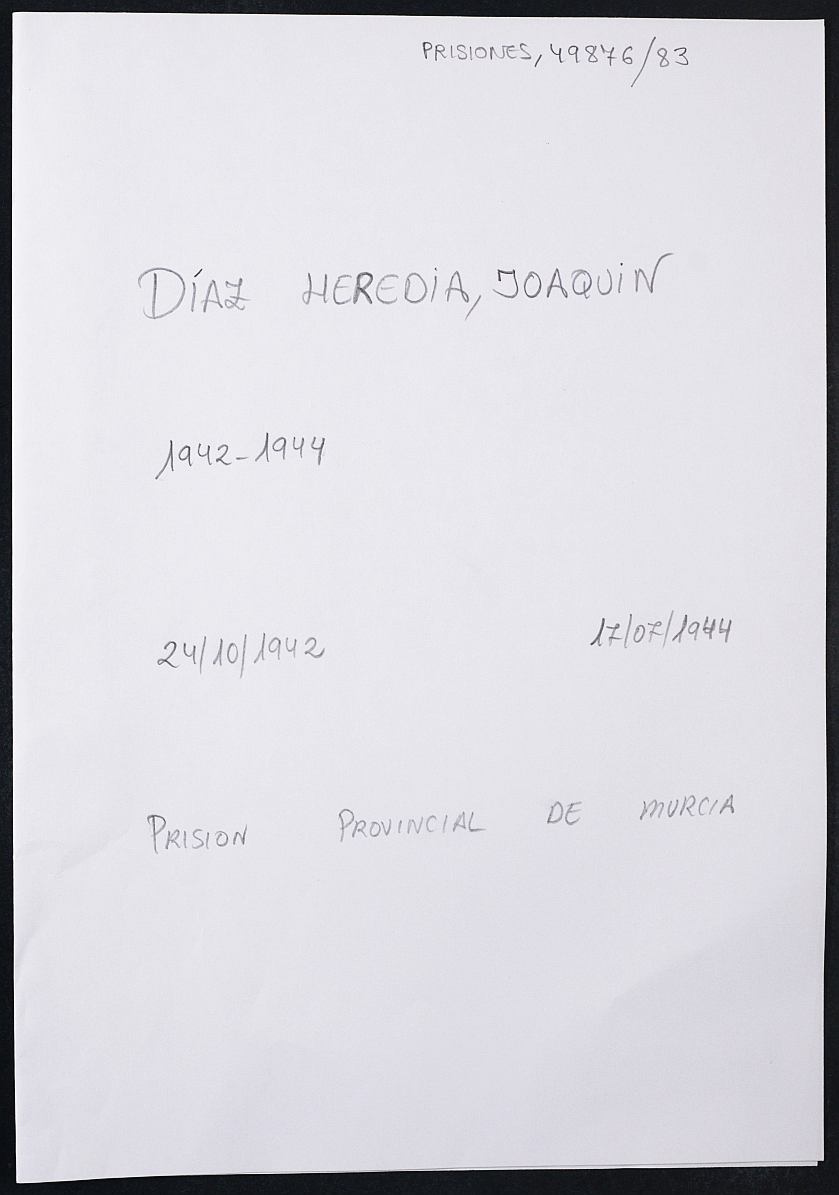 PRISIONES, 49876/83
DÍAZ HEREDIA, JOAQUIN
1942-1944
24/10/1942 17/07/1944
PRISION PROVINCIAL DE MURCIA